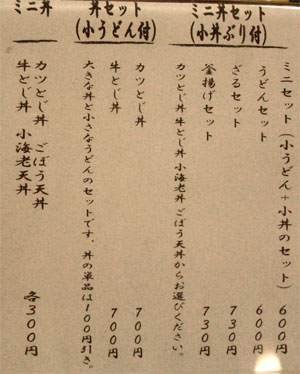 ミニ丼セット
(小丼ぶり付)
ミニセット(小うどん+小丼のセット)600円
うどんセット 600円
ざるセット 730円
釜揚げセット 730円
カツとじ丼 牛とじ丼 小海老天丼 ごぼう天丼からお選びください。
丼セット
(小うどん付)
カツとじ丼 700円
牛とじ丼 700円
大きな丼と小さなうどんのセットです。丼の単品は100円引き。
ミニ丼
カツとじ丼 ごぼう天丼
牛とじ丼 小海老天丼
各300円